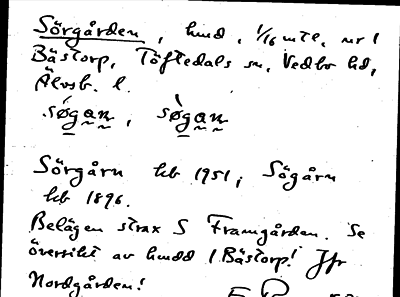 Sörgården, hmd, 1/16 mtl, nr 1
Bästorp, Töftedals sn, Vedbo hd,
Älvsb. l.
sǿgan, sø̀gan
Sörgårn kb 1951; Sögårn
kb 1896.
Belägen strax S Framgården. Se
översikt av hmdd 1 Bästorp! Jfr
Nordgården!